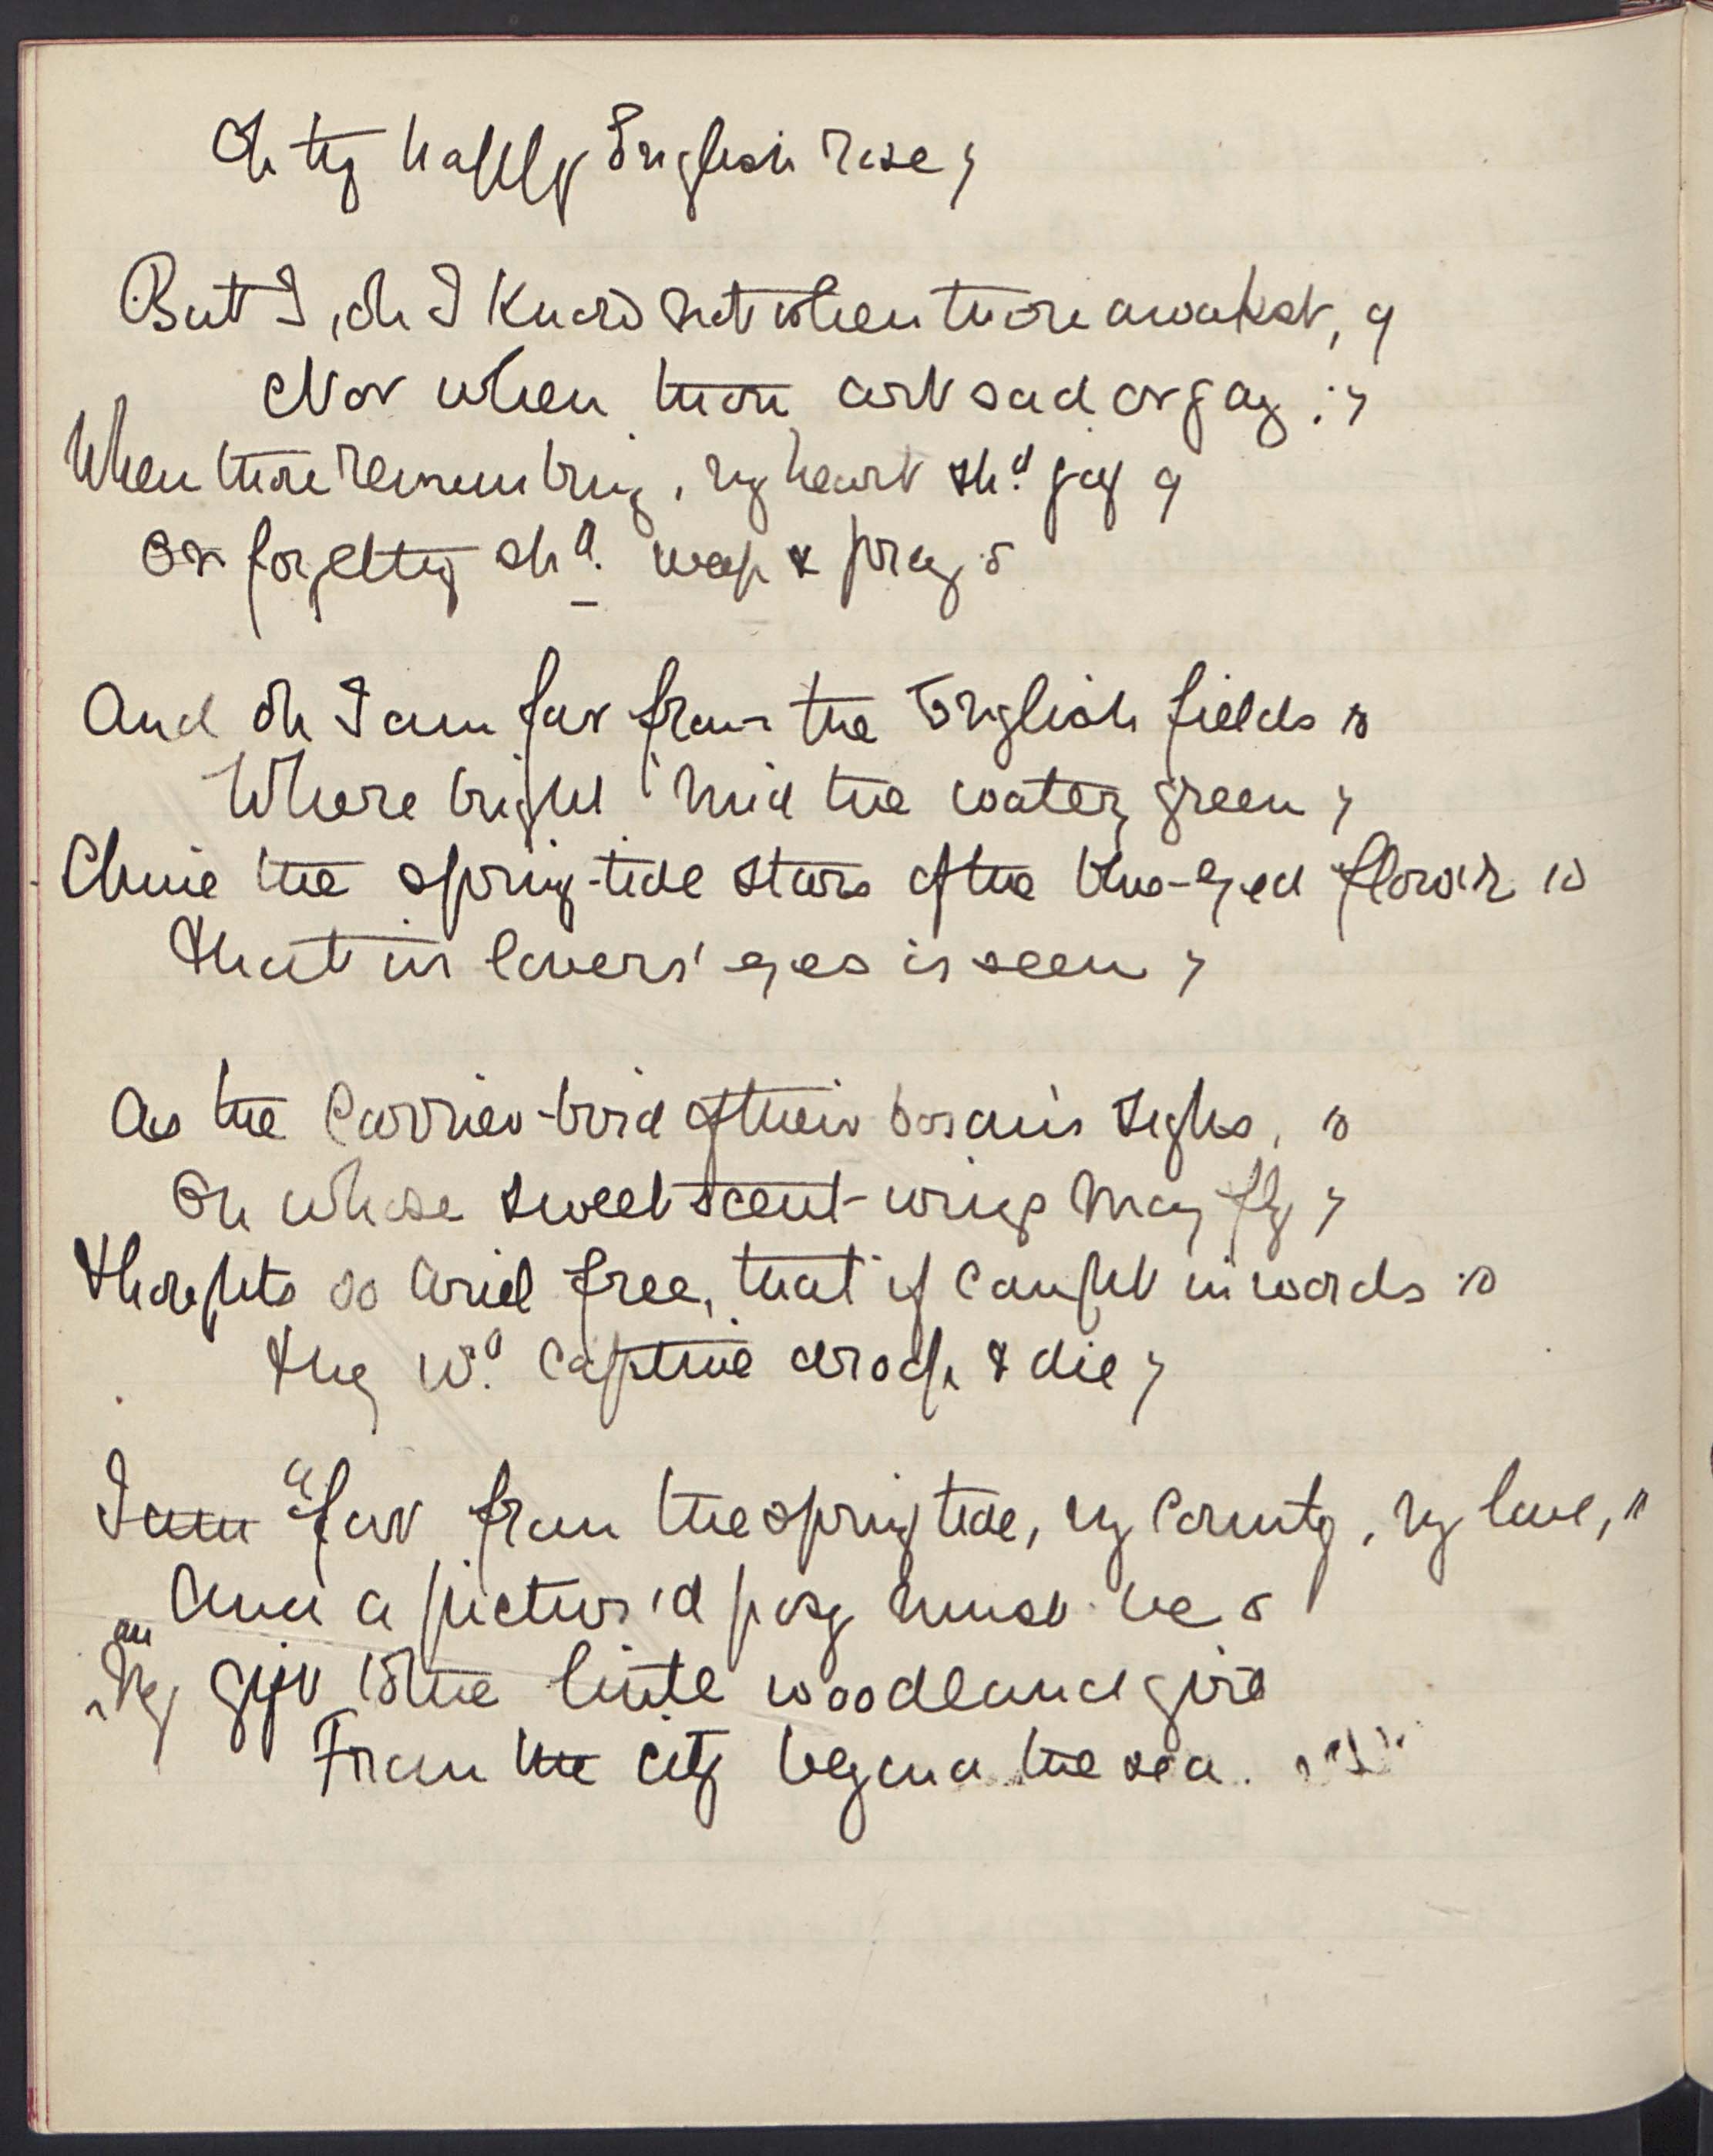 Oh thy happy English rose,
But I, oh I know not when thou awakst,
Nor when thou art sad or gay :
When thou rememb'ring, my heart shd. joy
Or forgetting shd. weep & pray
And oh I am far from the English fields
Where bright 'mid the watery green
Climb the spring-tide stars of the blue-eyed flow'r
that in lovers' eyes is seen
As the Carrier-bird of their bosom's sighs,
On whose sweet scent-wings may fly
thoughts so Ariel free, that if caught in words
they wd. captive droop & die
I am a far from the spring tide, my country, my love,
And a pictur'd posy must be
an
My gift to the little woodland girl
From the city beyond the sea.